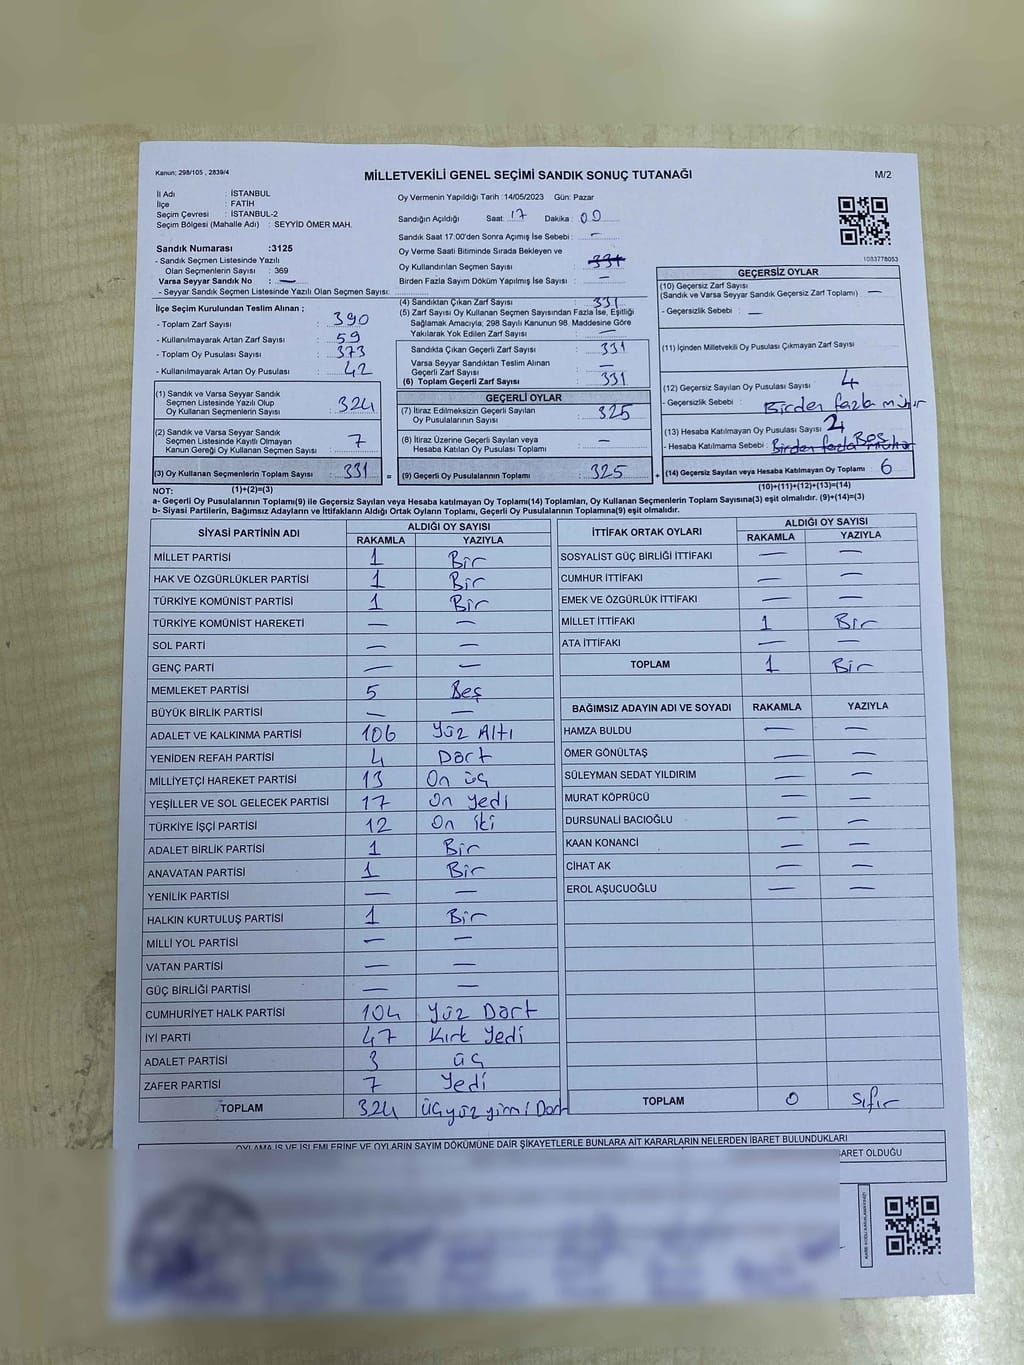 Kanun; 298/105 , 2839/4
MİLLETVEKİLİ GENEL SEÇİMİ SANDIK SONUÇ TUTANAĞI
M/2
İl Adı : İSTANBUL
İlçe : FATİH
Seçim Çevresi : İSTANBUL-2
Seçim Bölgesi (Mahalle Adı) : SEYYİD ÖMER MAH.
Sandık Numarası :3125
- Sandık Seçmen Listesinde Yazılı
Olan Seçmenlerin Sayısı : 369
Varsa Seyyar Sandık No : —
- Seyyar Sandık Seçmen Listesinde Yazılı Olan Seçmen Sayısı:
Oy Vermenin Yapıldığı Tarih :14/05/2023 Gün: Pazar
Sandığın Açıldığı Saat: 17 Dakika : 00
Sandık Saat 17:00'den Sonra Açımış İse Sebebi : —
Oy Verme Saati Bitiminde Sırada Bekleyen ve
Oy Kullandırılan Seçmen Sayısı : 331
Birden Fazla Sayım Döküm Yapılmış İse Sayısı : —
1083778053
İlçe Seçim Kurulundan Teslim Alınan ;
- Toplam Zarf Sayısı : 390
- Kullanılmayarak Artan Zarf Sayısı : 59
- Toplam Oy Pusulası Sayısı : 373
- Kullanılmayarak Artan Oy Pusulası : 42
(1) Sandık ve Varsa Seyyar Sandık
Seçmen Listesinde Yazılı Olup
Oy Kullanan Seçmenlerin Sayısı : 324
(2) Sandık ve Varsa Seyyar Sandık
Seçmen Listesinde Kayıtlı Olmayan
Kanun Gereği Oy Kullanan Seçmen Sayısı : 7
(3) Oy Kullanan Seçmenlerin Toplam Sayısı : 331 =
(4) Sandıktan Çıkan Zarf Sayısı : 331
(5) Zarf Sayısı Oy Kullanan Seçmen Sayısından Fazla İse, Eşitliği
Sağlamak Amacıyla; 298 Sayılı Kanunun 98. Maddesine Göre
Yakılarak Yok Edilen Zarf Sayısı : —
Sandıkta Çıkan Geçerli Zarf Sayısı : 331
Varsa Seyyar Sandıktan Teslim Alınan
Geçerli Zarf Sayısı : —
(6) Toplam Geçerli Zarf Sayısı : 331
GEÇERLİ OYLAR
(7) İtiraz Edilmeksizin Geçerli Sayılan
Oy Pusulalarının Sayısı : 325
(8) İtiraz Üzerine Geçerli Sayılan veya
Hesaba Katılan Oy Pusulası Toplamı : —
(9) Geçerli Oy Pusulalarının Toplamı : 325 +
GEÇERSİZ OYLAR
(10) Geçersiz Zarf Sayısı
(Sandık ve Varsa Seyyar Sandık Geçersiz Zarf Toplamı) : —
- Geçersizlik Sebebi : —
(11) İçinden Milletvekili Oy Pusulası Çıkmayan Zarf Sayısı
(12) Geçersiz Sayılan Oy Pusulası Sayısı : 4
- Geçersizlik Sebebi : Birden fazla mühür
(13) Hesaba Katılmayan Oy Pusulası Sayısı : 2
- Hesaba Katılmama Sebebi : Birden fazla mühür Boş
(14) Geçersiz Sayılan veya Hesaba Katılmayan Oy Toplamı : 6
NOT: (1)+(2)=(3)
(10)+(11)+(12)+(13)=(14)
a- Geçerli Oy Pusulalarının Toplamı(9) ile Geçersiz Sayılan veya Hesaba katılmayan Oy Toplamı(14) Toplamları, Oy Kullanan Seçmenlerin Toplam Sayısına(3) eşit olmalıdır. (9)+(14)=(3)
b- Siyasi Partilerin, Bağımsız Adayların ve İttifakların Aldığı Ortak Oyların Toplamı, Geçerli Oy Pusulalarının Toplamına(9) eşit olmalıdır.
SİYASİ PARTİNİN ADI ALDIĞI OY SAYISI
RAKAMLA YAZIYLA
MİLLET PARTİSİ 1 Bir
HAK VE ÖZGÜRLÜKLER PARTİSİ 1 Bir
TÜRKİYE KOMÜNİST PARTİSİ 1 Bir
TÜRKİYE KOMÜNİST HAREKETİ — —
SOL PARTİ — —
GENÇ PARTİ — —
MEMLEKET PARTİSİ 5 Beş
BÜYÜK BİRLİK PARTİSİ — —
ADALET VE KALKINMA PARTİSİ 106 Yüz Altı
YENİDEN REFAH PARTİSİ 4 Dört
MİLLİYETÇİ HAREKET PARTİSİ 13 On üç
YEŞİLLER VE SOL GELECEK PARTİSİ 17 On yedi
TÜRKİYE İŞÇİ PARTİSİ 12 On iki
ADALET BİRLİK PARTİSİ 1 Bir
ANAVATAN PARTİSİ 1 Bir
YENİLİK PARTİSİ — —
HALKIN KURTULUŞ PARTİSİ 1 Bir
MİLLİ YOL PARTİSİ — —
VATAN PARTİSİ — —
GÜÇ BİRLİĞİ PARTİSİ — —
CUMHURİYET HALK PARTİSİ 104 Yüz Dört
İYİ PARTİ 47 Kırk Yedi
ADALET PARTİSİ 3 üç
ZAFER PARTİSİ 7 Yedi
TOPLAM 324 üçyüz yirmi Dört
İTTİFAK ORTAK OYLARI ALDIĞI OY SAYISI
RAKAMLA YAZIYLA
SOSYALİST GÜÇ BİRLİĞİ İTTİFAKI — —
CUMHUR İTTİFAKI — —
EMEK VE ÖZGÜRLÜK İTTİFAKI — —
MİLLET İTTİFAKI 1 Bir
ATA İTTİFAKI — —
TOPLAM 1 Bir
BAĞIMSIZ ADAYIN ADI VE SOYADI RAKAMLA YAZIYLA
HAMZA BULDU — —
ÖMER GÖNÜLTAŞ — —
SÜLEYMAN SEDAT YILDIRIM — —
MURAT KÖPRÜCÜ — —
DURSUNALİ BACIOĞLU — —
KAAN KONANCİ — —
CİHAT AK — —
EROL AŞUCUOĞLU — —
TOPLAM 0 Sıfır
OYLAMA İŞ VE İŞLEMLERİNE VE OYLARIN SAYIM DÖKÜMÜNE DAİR ŞİKAYETLERLE BUNLARA AİT KARARLARIN NELERDEN İBARET BULUNDUKLARI
BARET OLDUĞU